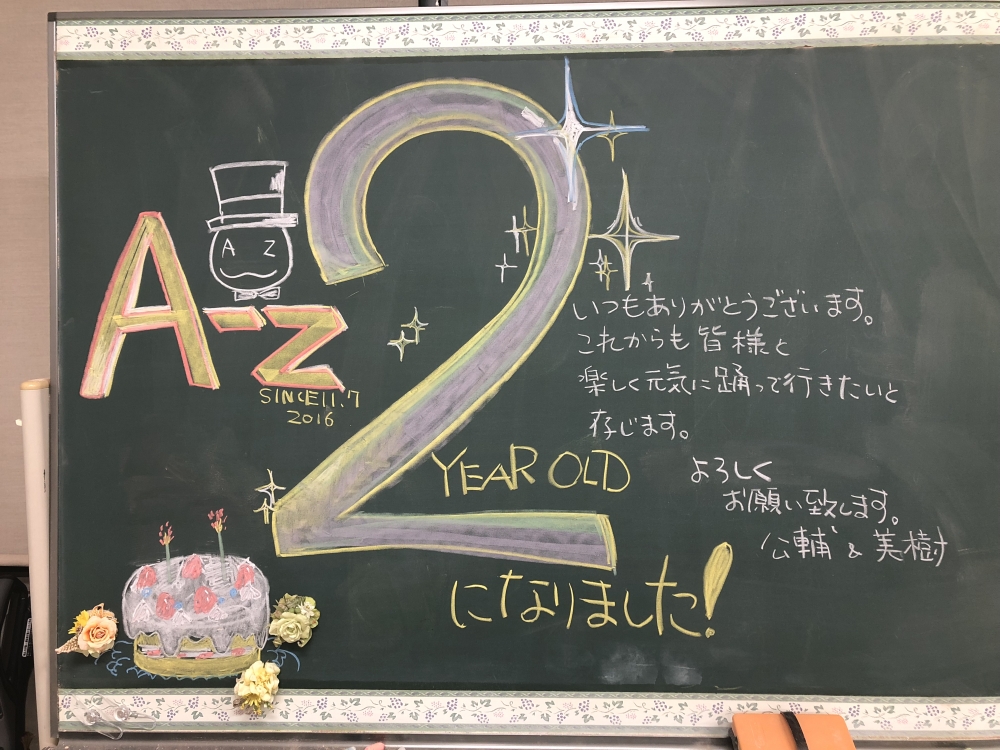 A Z
A-Z
SINCE11.7
2016
2
YEAR OLD
になりました!
いつもありがとうございます。
これからも皆様と
楽しく元気に踊って行きたいと
存じます。
よろしく
お願い致します。
公輔 & 美樹